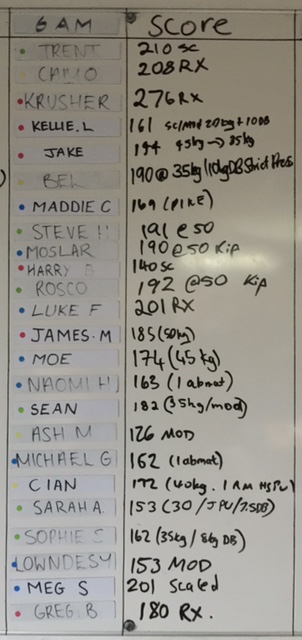 6 AM Score
TRENT 210 sc
CAMO 208 RX
KRUSHER 276 RX
KELLIE.L 161 20kg + 10DB
JAKE 194 45kg → 35kg
BEL 190 @ 35kg/10kgDB Strict Press
MADDIE C 169 (PIKE)
STEVE H 191 @ 50
MOSLAR 190 @ 50 Kip
HARRY 140 sc
ROSCO 192 @50 Kip
LUKE F 201 RX
JAMES.M 185 (50kg)
MOE 174 (45 kg)
NAOMI H 163 (1 abmat)
SEAN 182 (35kg/mod)
ASH M 126 MOD
MICHAEL G 162 (1abmat)
CIAN 172 (40kg. 1 RM HSPU)
SARAH A. 153 (30/JPU/7.5DB)
SOPHIE S 162 (35kg / 8kg DB)
LOWNDESY 153 MOD
MEG S 201 Scaled
GREG.B 180 RX.